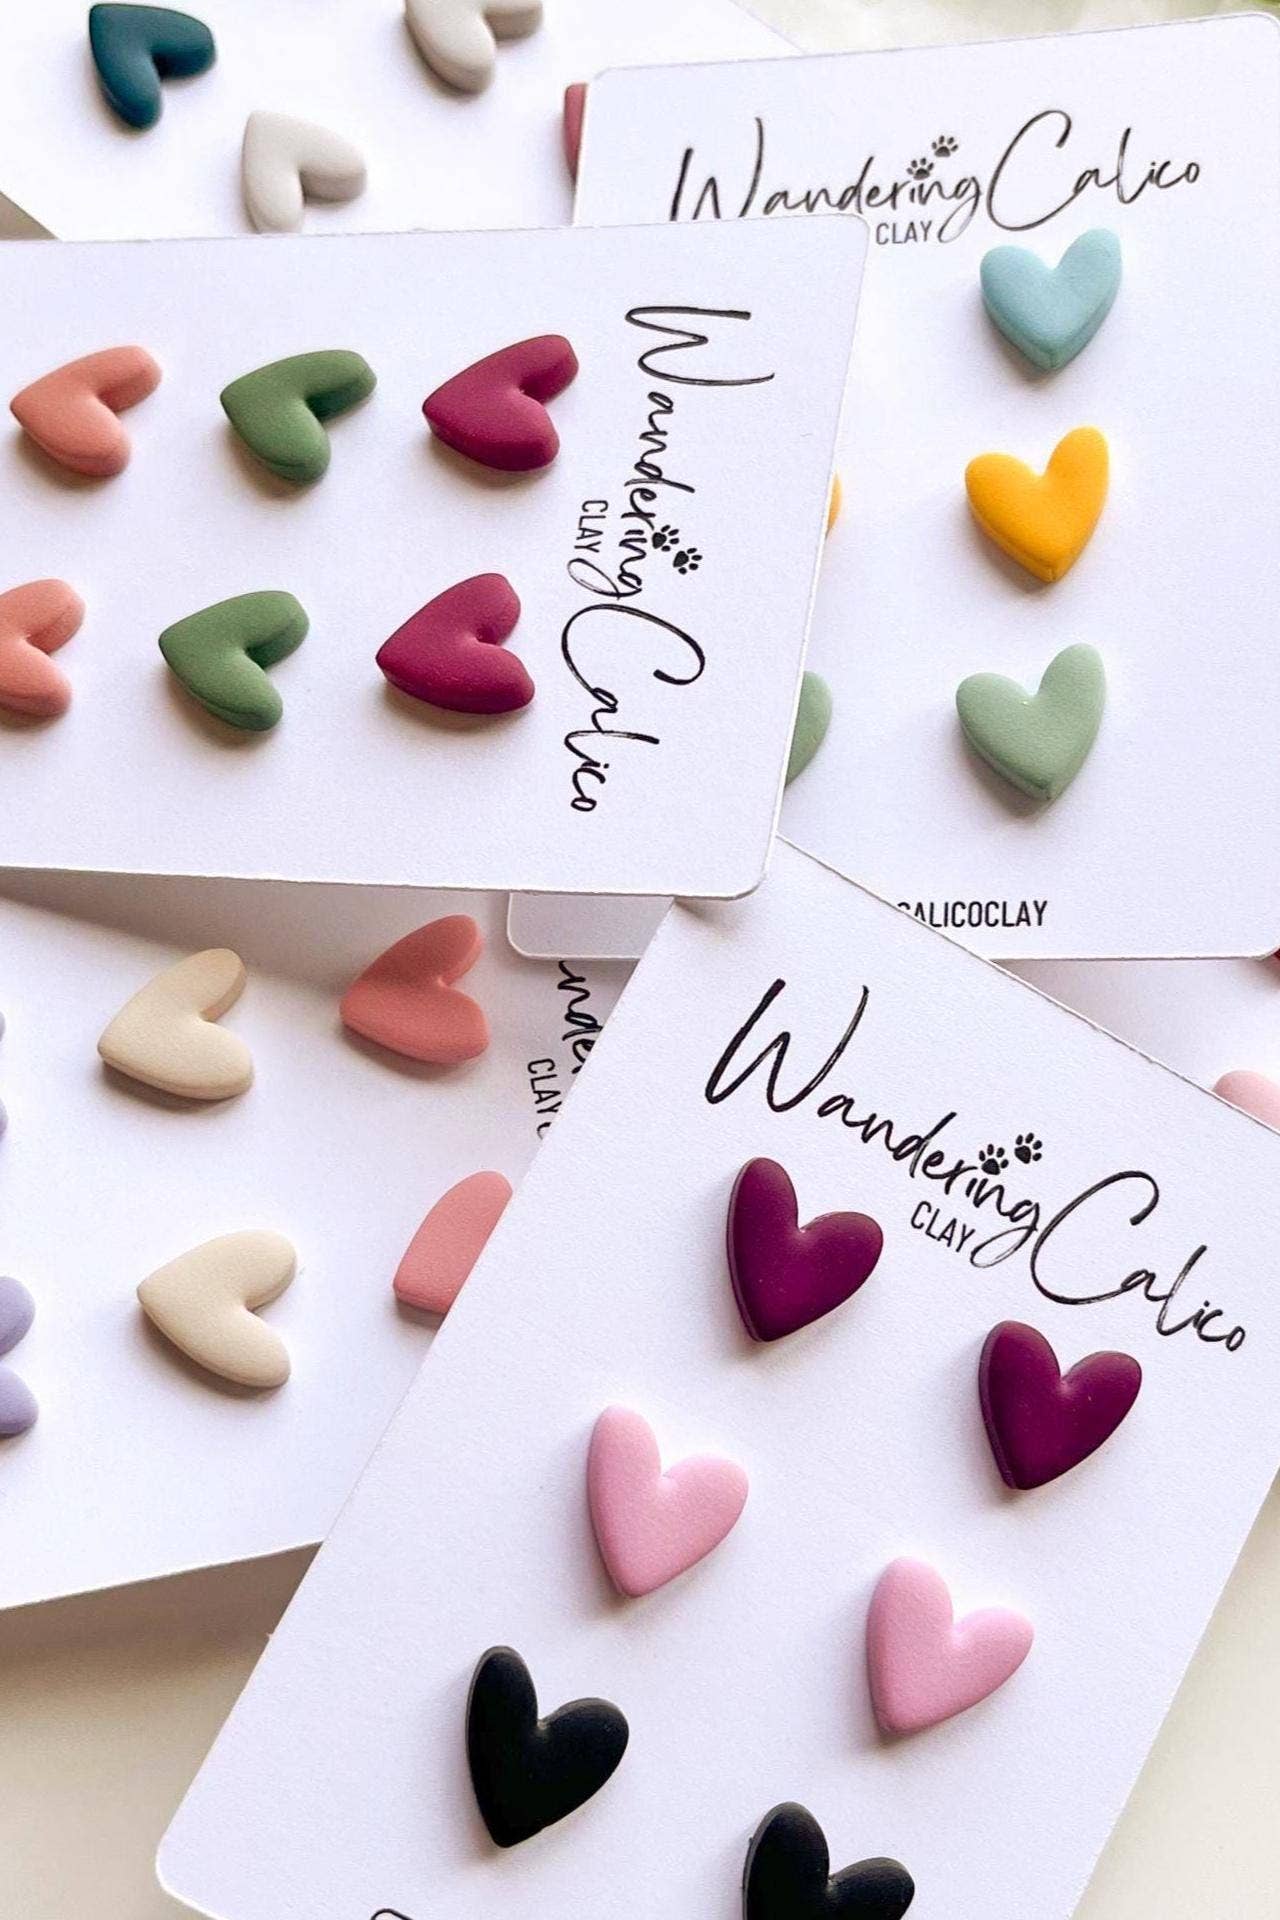 Wandering Calico
CLAY
Wandering Calico
CLAY
CALICOCLAY
CLAY
Wandering Calico
CLAY